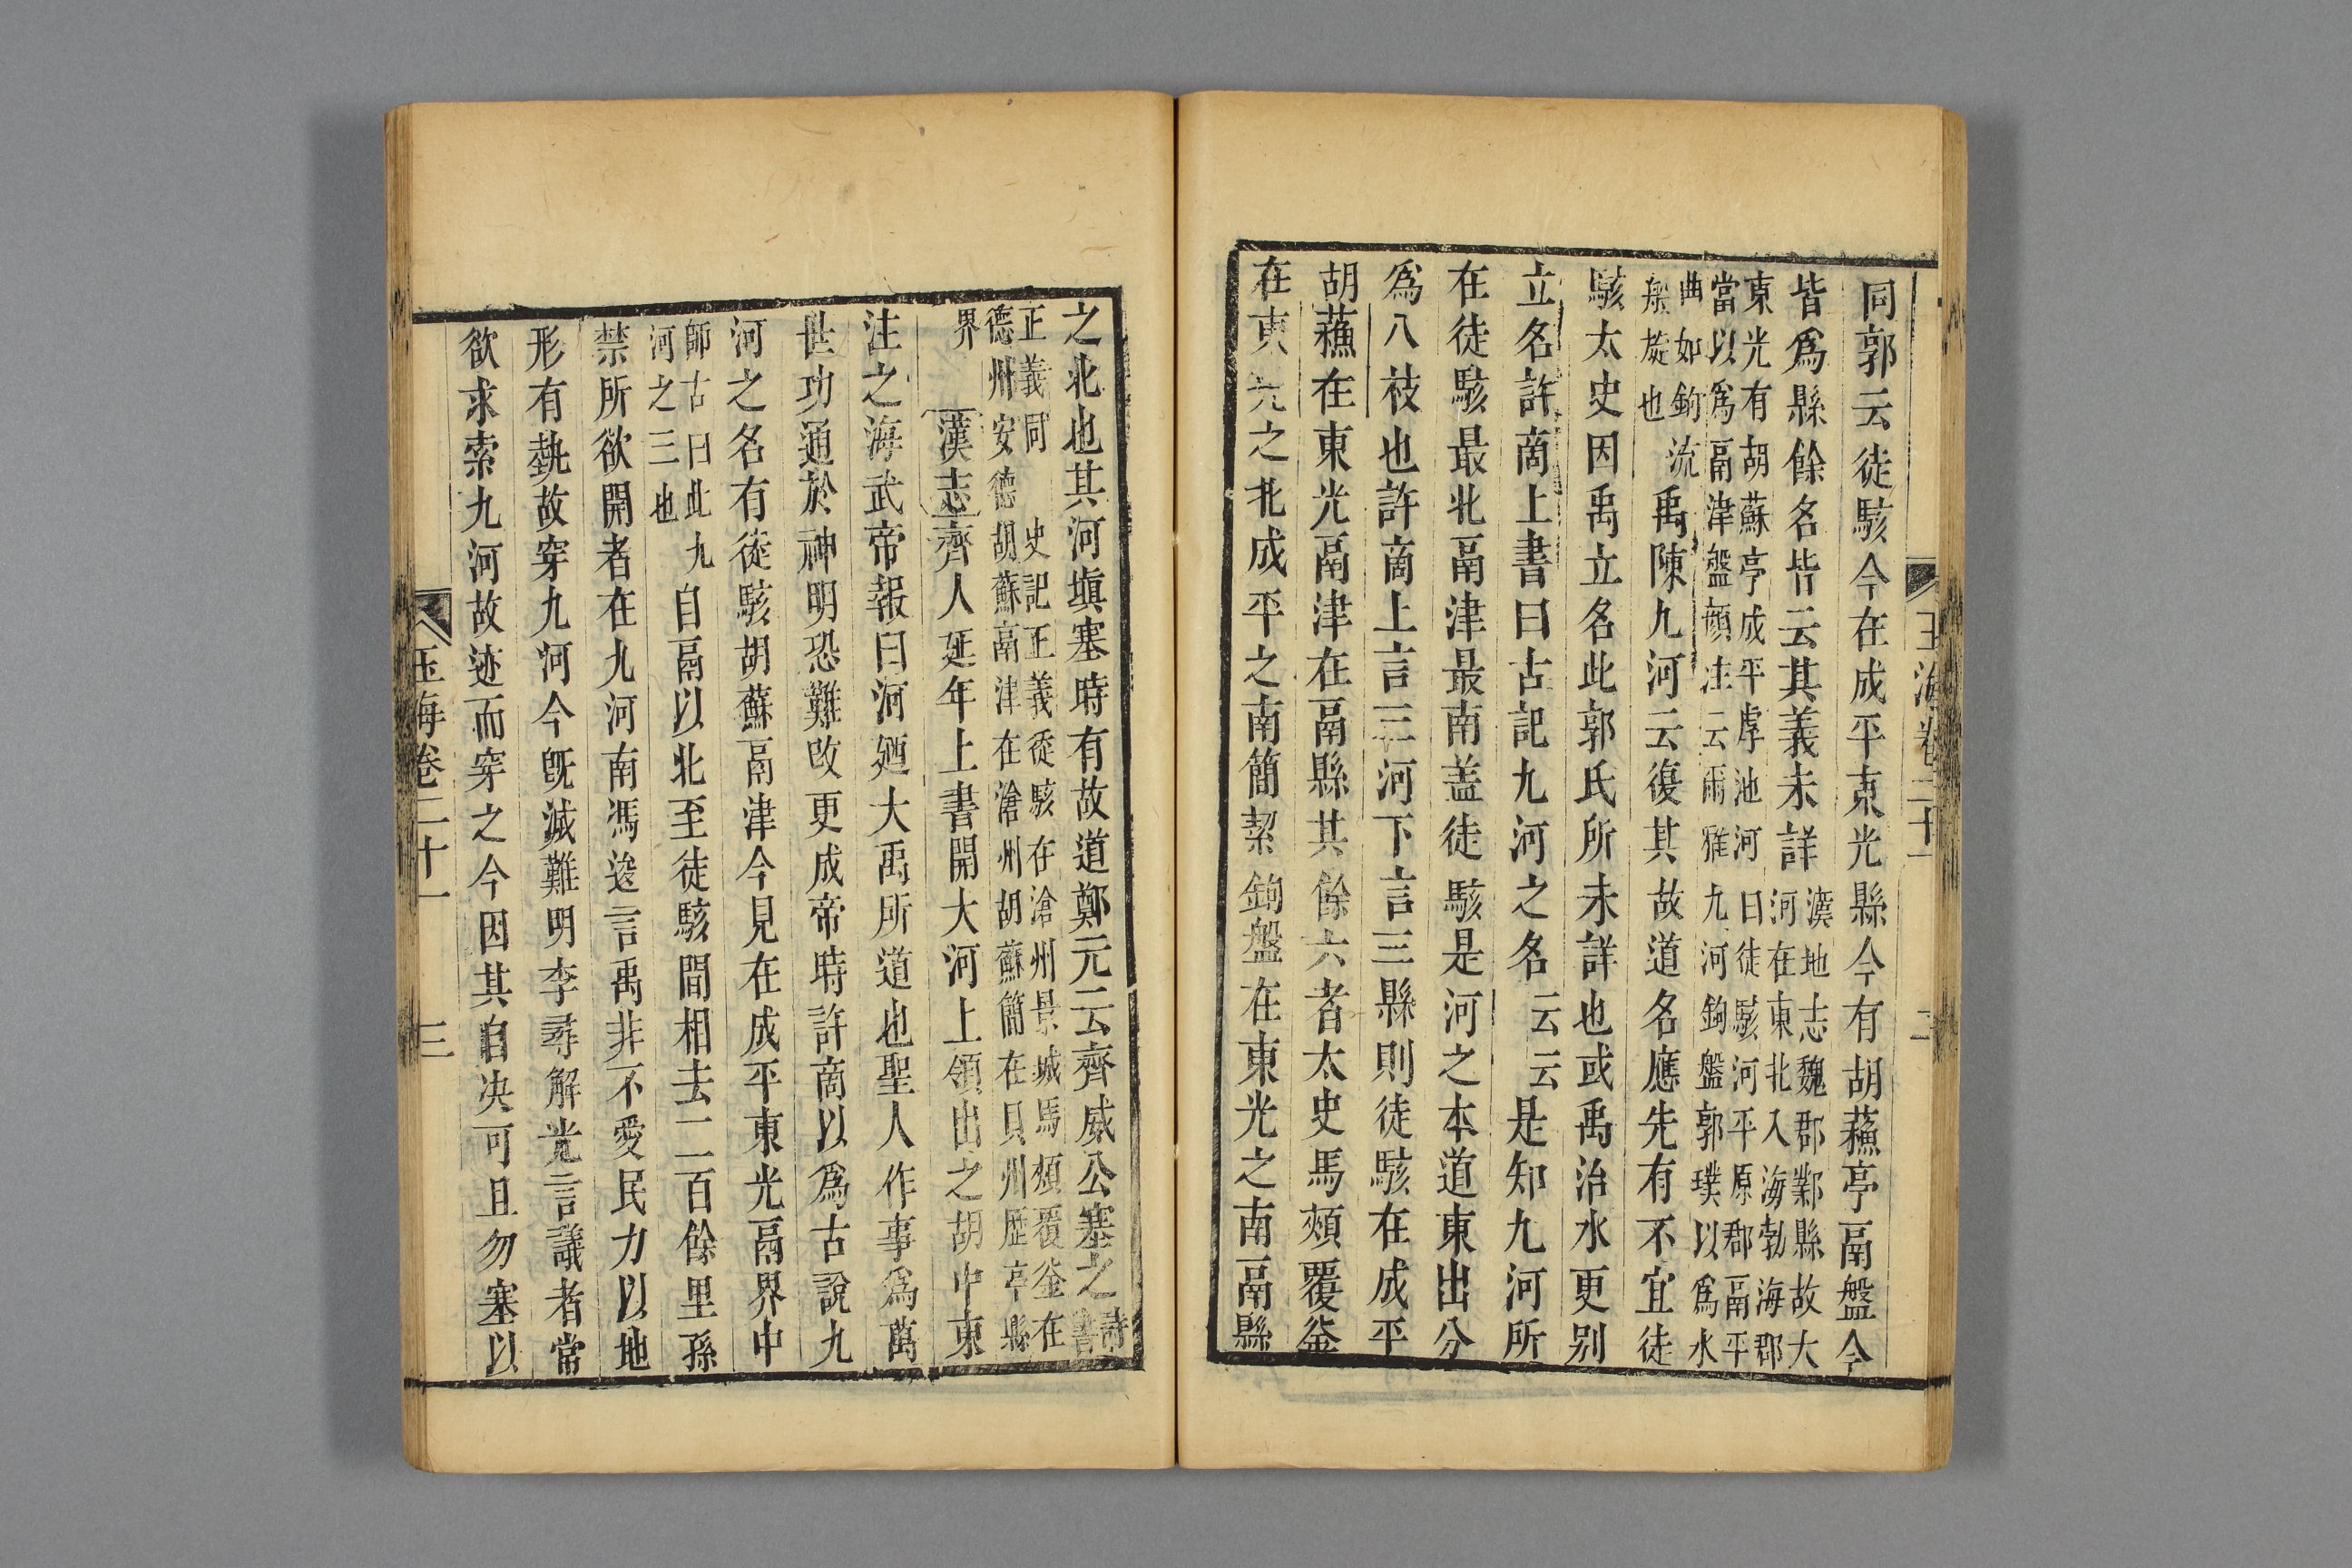 玉海卷二十一
二
同郭云徒駭今在成平東光縣今有胡蘓亭鬲盤今
皆爲縣餘名皆云其義未詳
漢地志魏郡鄴縣故大
河在東北入海勃海郡
東光有胡蘇亭成平虖池河曰徒駭河平原郡鬲平
當以爲鬲津盤顔注云爾雅九河鉤盤郭璞以爲水
曲如鉤流
般旋也
禹陳九河云復其故道名應先有不宜徒
駭太史因禹立名此郭氏所未詳也或禹治水更別
立名許商上書曰古記九河之名云云是知九河所
在徒駭最北鬲津最南蓋徒駭是河之本道東出分
爲八枝也許商上言三河下言三縣則徒駭在成平
胡蘓在東光鬲津在鬲縣其餘六者太史馬頰覆釜
在東光之北成平之南簡絜鉤盤在東光之南鬲縣
之北也其河塡塞時有故道鄭元云齊威公塞之
詩
書
正義同 史記正義徒駭在滄州景城馬頰覆釜在
德州安德胡蘇鬲津在滄州胡蘇簡在貝州歴亭縣
界
漢志齊人延年上書開大河上領出之胡中東
注之海武帝報曰河廼大禹所道也聖人作事爲萬
世功通於神明恐難改更成帝時許商以爲古說九
河之名有徒駭胡蘇鬲津今見在成平東光鬲界中
師古曰此九
河之三也
自鬲以北至徒駭間相去二百餘里孫
禁所欲開者在九河南馮逡言禹非不愛民力以地
形有埶故穿九河今旣滅難明李尋解光言議者常
欲求索九河故迹而穿之今因其自决可且勿塞以
玉海卷二十一
三